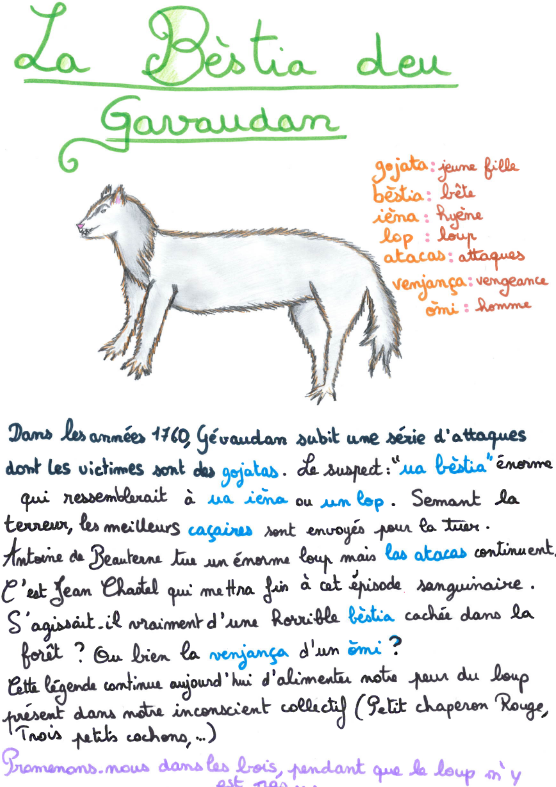 La Bèstia deu
Gavaudan
gojata : jeune fille
bèstia : bête
ièna : hyène
lop : loup
atacas : attaques
venjança : vengeance
òmi : homme
Dans les années 1760, Gévaudan subit une série d'attaques
dont les victimes sont des gojatas. Le suspect : "ua bèstia" énorme
qui ressemblerait à ua ièna ou un lop. Semant la
terreur, les meilleurs caçaires sont envoyés pour la tuer.
Antoine de Beauterne tue un énorme loup mais las atacas continuent.
C'est Jean Chastel qui mettra fin à cet épisode sanguinaire.
S'agissait-il vraiment d'une horrible bèstia cachée dans la
forêt ? Ou bien la venjança d'un òmi ?
Cette légende continue aujourd'hui d'alimenter notre peur du loup
présent dans notre inconscient collectif (Petit chaperon Rouge,
Trois petits cochons, ...)
Promenons-nous dans les bois, pendant que le loup n'y
est pas ...